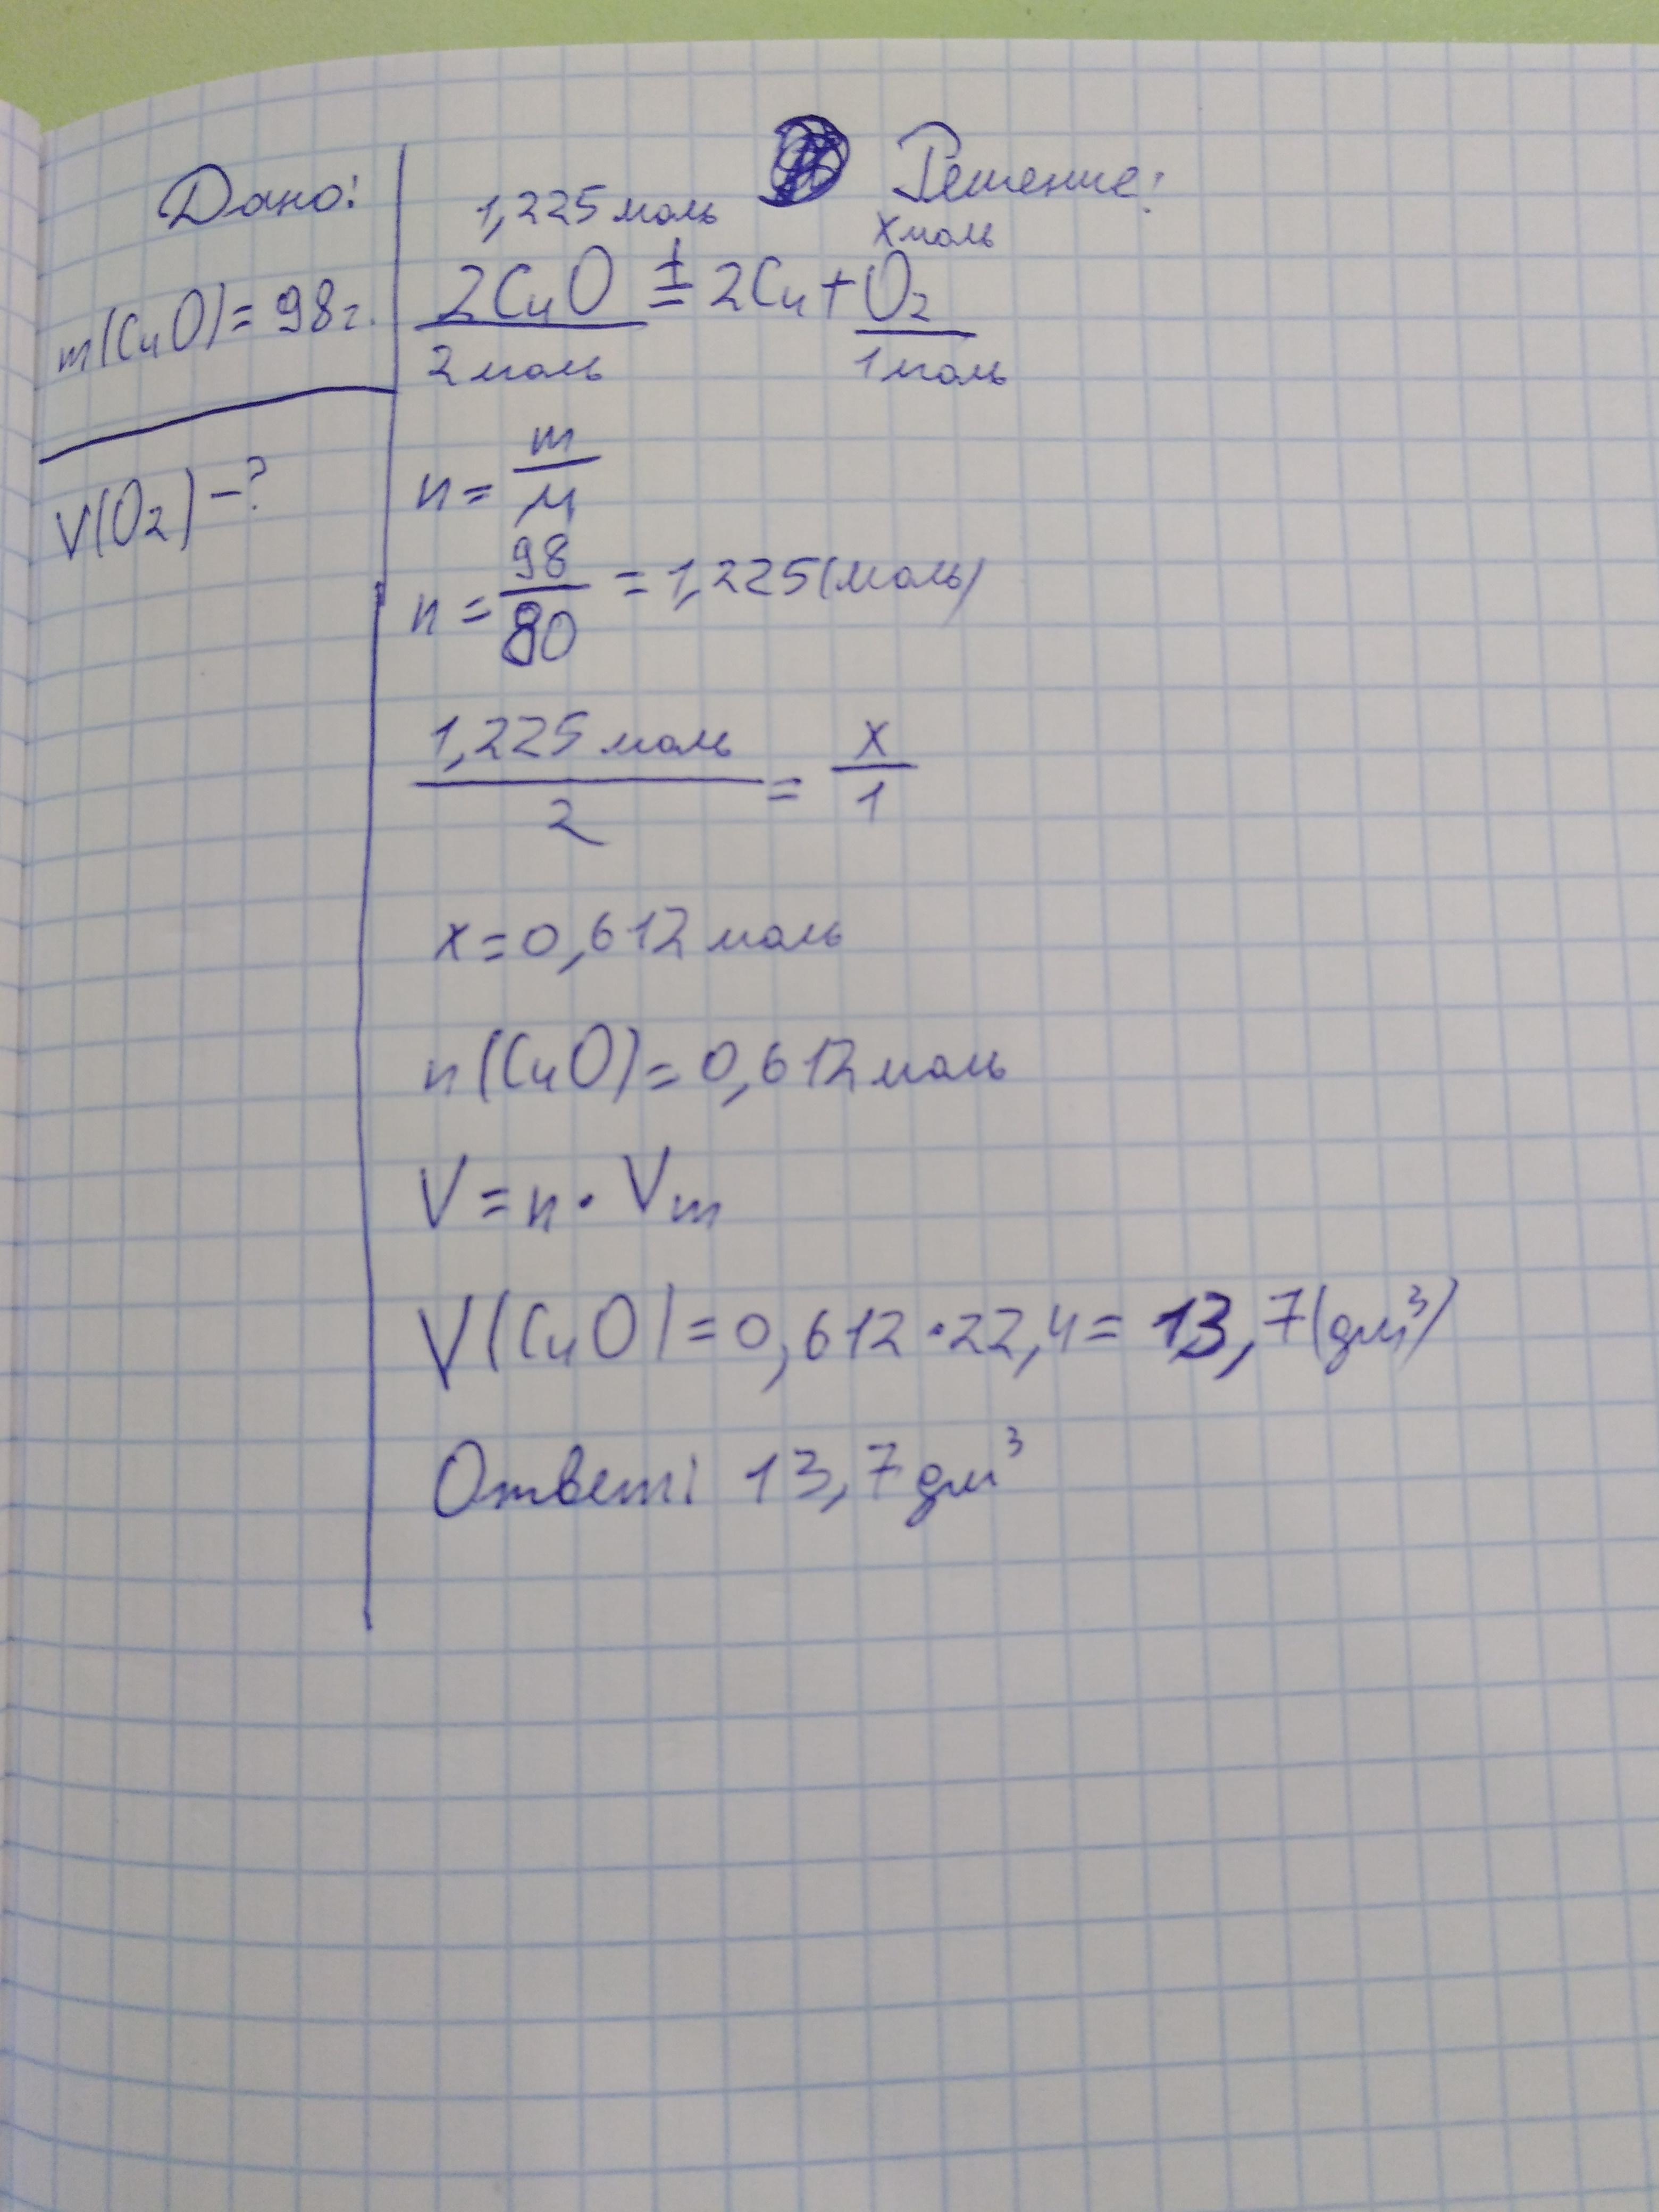 Дано:
m(CuO)= 98г.
V(O₂) –?
Решение:
1,225 моль
x моль
2CuO t= 2Cu + O₂
2 моль
1 моль
n = m/M
n = 98/80 = 1,225(моль)
1,225 моль/2 = x/1
x = 0,612 моль
n(CuO) = 0,612 моль
V = n · Vm
V(CuO) = 0,612 · 22,4 = 13,7(дм³)
Ответ: 13,7 дм³